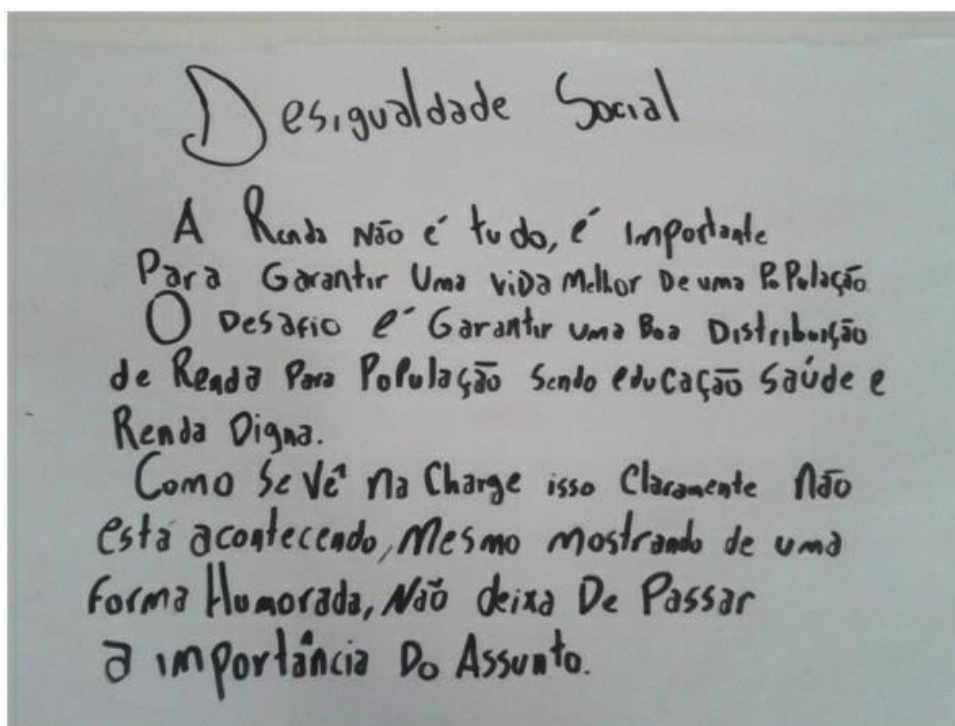 Desigualdade Social
A Renda Não é tudo, é importante
Para Garantir Uma viDa Melhor De uma PoPulação
O Desafio é Garantir uma Boa Distribuição
de Renda Para População Sendo educação Saúde e
Renda Digna.
Como Se Vê na Charge isso Claramente Não
está acontecendo, Mesmo mostrando de uma
forma Humorada, Não deixa De Passar
a importância Do Assunto.